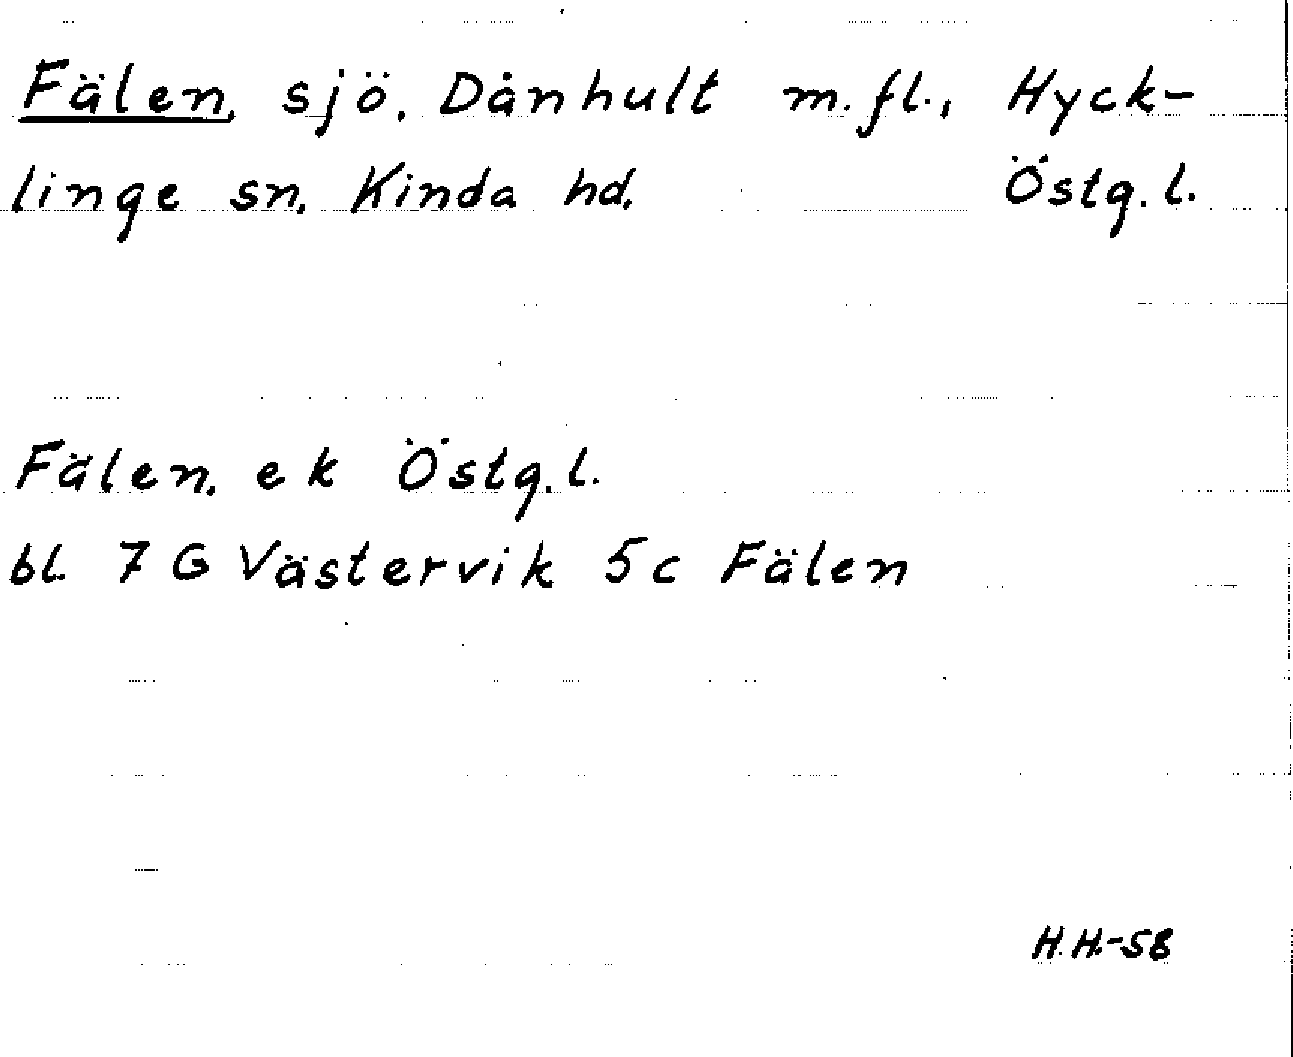 Fälen, sjö, Dånhult m.fl., Hyck-
linge sn, Kinda hd. Östg.l.
Fälen, ek Östg.l.
bl. 7 G Västervik 5c Fälen
H.H.-58